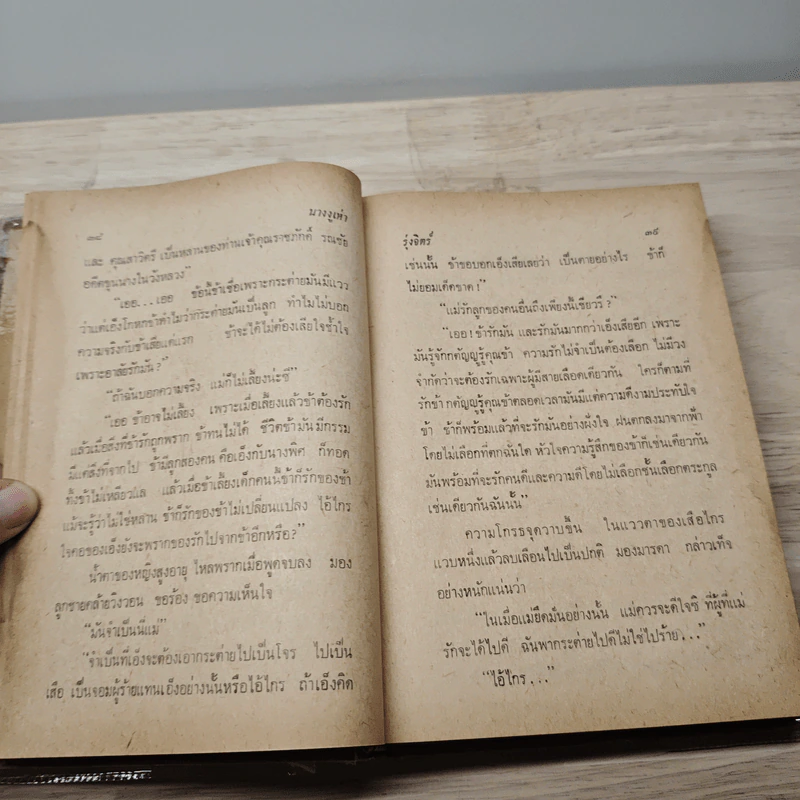 ๓๔
นางงูเห่า
และ คุณสาวิตรี เป็นหลานของท่านเจ้าคุณราชภักดิ์ รณชัย
อดีตขุนนางในวังหลวง”
“เออ...เออ ข้อนี้ข้าเชื่อเพราะกระต่ายมันมีแวว
ว่าแต่เอ็งโกหกข้าทำไมว่ากระต่ายมันเป็นลูก ทำไมไม่บอก
ความจริงกับข้าเสียแต่แรก ข้าจะได้ไม่ต้องเสียใจช้ำใจ
เพราะอาลัยรักมัน?”
“ถ้าฉันบอกความจริง แม่ก็ไม่เลี้ยงน่ะซี”
“เออ ข้าอาจไม่เลี้ยง เพราะเมื่อเลี้ยงแล้วข้าต้องรัก
แล้วเมื่อสิ่งที่ข้ารักถูกพราก ข้าทนไม่ได้ ชีวิตข้ามันมีกรรม
มีแต่สิ่งที่จากไป ข้ามีลูกสองคน คือเอ็งกับนางพิศ ก็ทอด
ทิ้งข้าไม่เหลียวแล แล้วเมื่อข้าเลี้ยงเด็กคนนี้ข้าก็รักของข้า
แม้จะรู้ว่าไม่ใช่หลาน ข้าก็รักของข้าไม่เปลี่ยนแปลง ไอ้ไกร
ใจคอของเอ็งยังจะพรากของรักไปจากข้าอีกหรือ?”
น้ำตาของหญิงสูงอายุ ไหลพรากเมื่อพูดจบลง มอง
ลูกชายคล้ายวิงวอน ขอร้อง ขอความเห็นใจ
“มันจำเป็นนี่แม่”
“จำเป็นที่เอ็งจะต้องเอากระต่ายไปเป็นโจร ไปเป็น
เสือ เป็นจอมผู้ร้ายแทนเอ็งอย่างนั้นหรือไอ้ไกร ถ้าเอ็งคิด
รุ่งจิตร์
๓๕
เช่นนั้น ข้าขอบอกเอ็งเสียเลยว่า เป็นตายอย่างไร ข้าก็
ไม่ยอมเด็ดขาด!”
“แม่รักลูกของคนอื่นถึงเพียงนี้เชียวรึ?”
“เออ! ข้ารักมัน และรักมันมากกว่าเอ็งเสียอีก เพราะ
มันรู้จักกตัญญูรู้คุณข้า ความรักไม่จำเป็นต้องเลือก ไม่มีวง
จำกัดว่าจะต้องรักเฉพาะผู้มีสายเลือดเดียวกัน ใครก็ตามที่
รักข้า กตัญญูรู้คุณข้าตลอดเวลามันมีแต่ความดีงามประทับใจ
ข้า ข้าก็พร้อมแล้วที่จะรักมันอย่างฝังใจ ฝนตกลงมาจากฟ้า
โดยไม่เลือกที่ตกฉันใด หัวใจความรู้สึกของข้าก็เช่นเดียวกัน
มันพร้อมที่จะรักคนดีและความดีโดยไม่เลือกชั้นเลือกตระกูล
เช่นเดียวกันฉันนั้น”
ความโกรธจุดวาบขึ้น ในแววตาของเสือไกร
แวบหนึ่งแล้วลบเลือนไปเป็นปกติ มองมารดา กล่าวเท็จ
อย่างหนักแน่นว่า
“ในเมื่อแม่ยึดมั่นอย่างนั้น แม่ควรจะดีใจซิ ที่ผู้ที่แม่
รักจะได้ไปดี ฉันพากระต่ายไปดีไม่ใช่ไปร้าย...”
“ไอ้ไกร...”